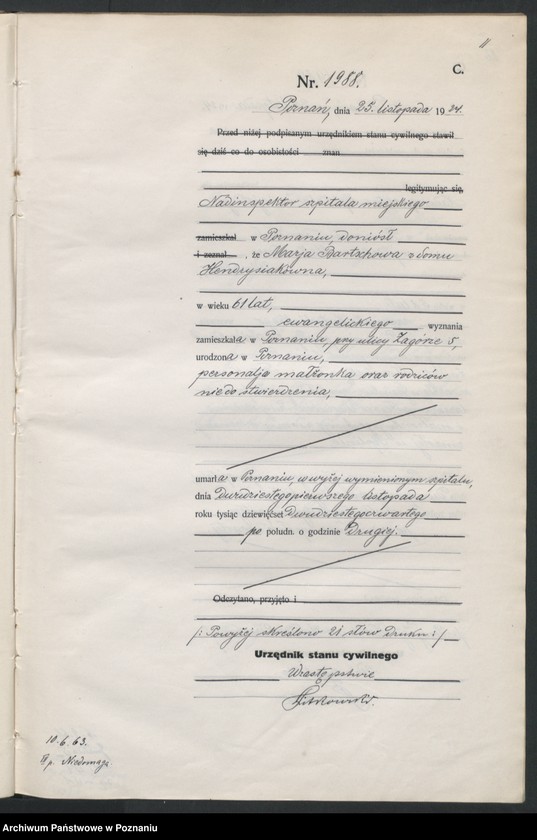 11
C.
Nr. 1988.
Poznań, dnia 25. listopada 1924.
Przed niżej podpisanym urzędnikiem stanu cywilnego stawił
się dziś co do osobistości znan
legitymując się,
Nadinspektor szpitala miejskiego
zamieszkał w Poznaniu, doniósł
i zeznał , że Marja Bartschowa z domu
Hendrysiakówna,
w wieku 61 lat,
ewangelickiego wyznania
zamieszkała w Poznaniu, przy ulicy Zagórze 5,
urodzona w Poznaniu,
personalja małżonka oraz rodziców
nie do stwierdzenia,
umarła w Poznaniu, w wyżej wymienionym szpitalu,
dnia Dwudziestegopierwszego listopada
roku tysiąc dziewięćset Dwudziestegoczwartego
po połudn. o godzinie Drugiej.
Odczytano, przyjęto i
/: Powyżej skreślono 21 słów druku :/
Urzędnik stanu cywilnego
W zastępstwie
10.6.63.
Archiwum Państwowe w Poznaniu